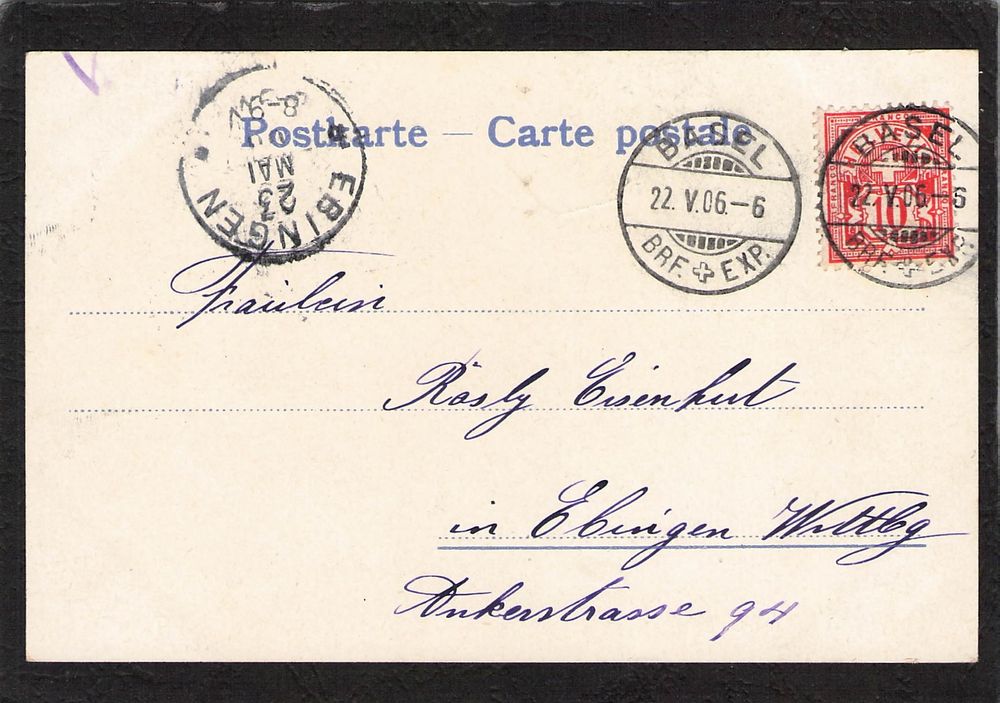 Postkarte – Carte postale
EBINGEN
23
MAI
8-9
BASEL
22. V.06.–6
BRF. EXP.
BASEL
22. V.06.–6
BRF. EXP.
10
Fräulein
Rösly Eisenhut
in Ebingen Wttbg
Ankerstrasse 94